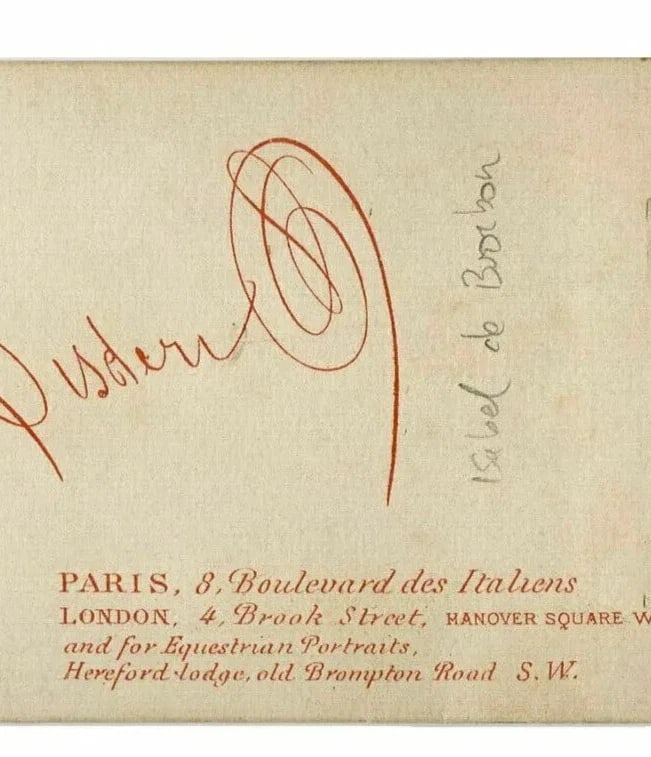 Disderi
Isabel de Borbon
PARIS, 8, Boulevard des Italiens
LONDON, 4, Brook Street, HANOVER SQUARE W
and for Equestrian Portraits,
Hereford-lodge, old Brompton Road S.W.